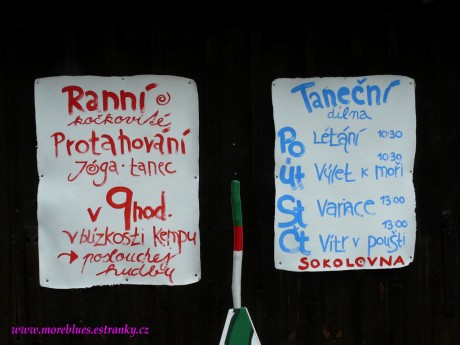 Ranní
kočkovité
Protahování
Jóga · tanec
v 9 hod.
v blízkosti kempu
→ poslouchej
hudbu
Taneční
dílna
Po Létání 10:30
Út Výlet k moři 10:30
St Variace 13:00
Čt Vítr v poušti 13:00
SOKOLOVNA
www.moreblues.estranky.cz